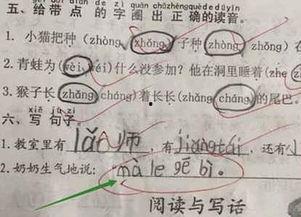 五、给带点的字圈出正确的读音。
1. 小猫把种（zhòng zhǒng）子种（zhòng zhǒng）在
2. 青蛙为（wèi wéi）什么没参加？他在洞里睡着（zhe
3. 猴子长（zhǎng cháng）着长长（zhǎng cháng）的尾巴
xiě jù zi
六、写句子。
1. 教室里有 lǎo师，有 jiangtái，还有
2. 奶奶生气地说：mà le gē bì。
阅读与写话